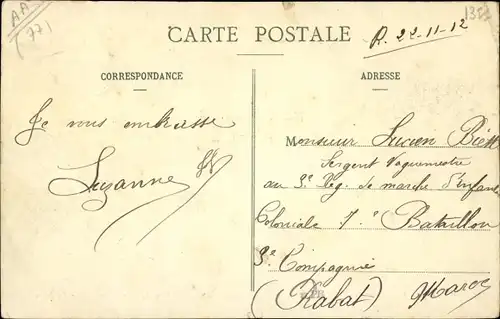 AA
771
CARTE POSTALE
R. 22-11-12
CORRESPONDANCE
ADRESSE
Je vous embrasse
Suzanne
Monsieur Lucien
Sergent Vaguemestre
au 3e Rég. de marche d'Infant
Coloniale 7e Bataillon
3e Compagnie
(Rabat) Maroc